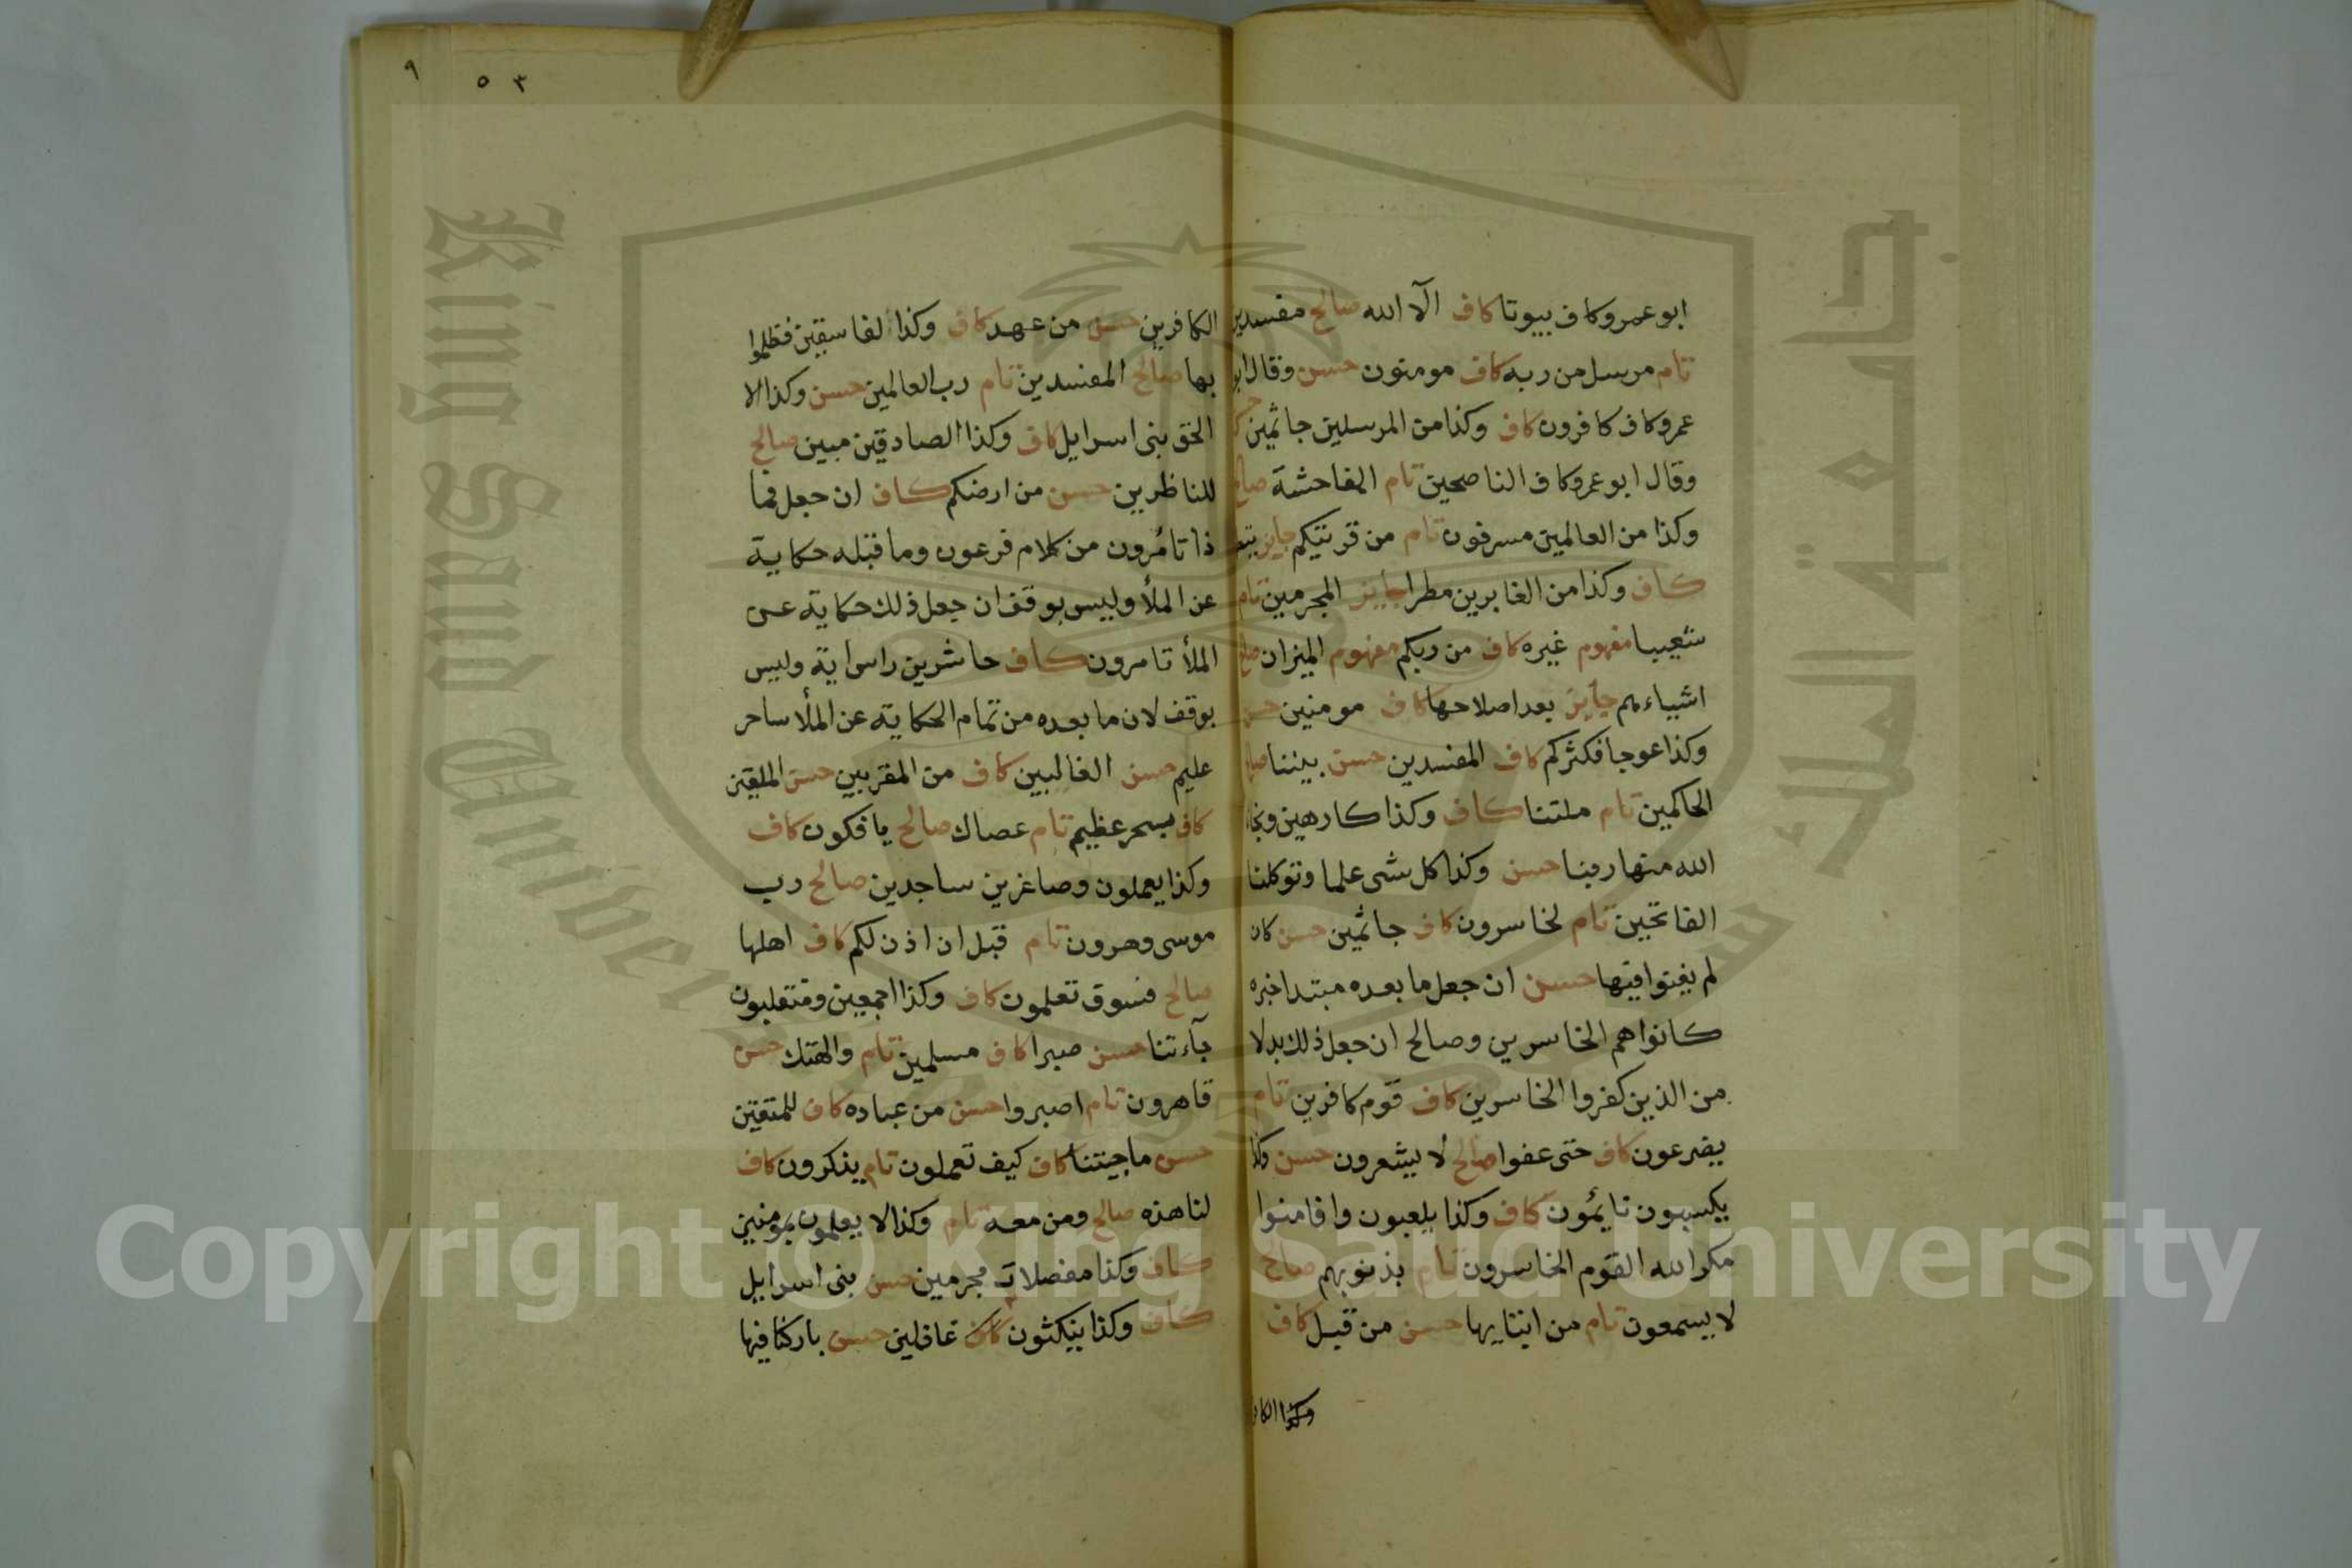 ٩
٥ ٣
ابو عمرو كاف بيوتا كاف الآ الله صالح مفسدين
تام مرسل من ربه كاف مومنون حسن وقال ابو
عمرو كاف كافرون كاف وكذا من المرسلين جاثمين
وقال ابو عمرو كاف الناصحين تام الفاحشة صالح
وكذا من العالمين مسرفون تام من قريتكم جايز
كاف وكذا من الغابرين مطرا جايز المجرمين تام
شعيبا مفهوم غيره كاف من ربكم مفهوم الميزان
اشياءهم جايز بعد اصلاحها كاف مومنين حسن
وكذا عوجا فكثركم كاف المفسدين حسن بيننا
الحاكمين تام ملتنا كاف وكذا كارهين ونجانا
الله منها ربنا حسن وكذا كل شى علما وتوكلنا
الفاتحين تام لخاسرون كاف جاثمين حسن كان
لم يغنوا فيها حسن ان جعل ما بعده مبتدا خبره
كانوا هم الخاسرين وصالح ان جعل ذلك بدلا
من الذين كفروا الخاسرين كاف قوم كافرين تام
يضرعون كاف حتى عفوا صالح لا يشعرون حسن وكذا
يكسبون نايمون كاف وكذا يلعبون وافامنوا
مكر الله القوم الخاسرون تام بذنوبهم صالح
لا يسمعون تام من انبايها حسن من قبل كاف
وكذا
الكافرين حسن من عهد كاف وكذا لفاسقين فظلموا
بها صالح المفسدين تام رب العالمين حسن وكذا الا
الحق بنى اسرايل كاف وكذا الصادقين مبين صالح
للناظرين حسن من ارضكم كاف ان جعل فما
ذا تامرون من كلام فرعون وما قبله حكاية
عن الملأ وليس بوقف ان جعل ذلك حكاية عن
الملأ تامرون كاف حاشرين راس اية وليس
بوقف لان ما بعده من تمام الحكاية عن الملأ ساحر
عليم حسن الغالبين كاف من المقربين حسن الملقين
كاف بسحر عظيم تام عصاك صالح يافكون كاف
وكذا يعملون وصاغرين ساجدين صالح رب
موسى وهرون تام قبل ان اذن لكم كاف اهلها
صالح فسوف تعلمون كاف وكذا اجمعين ومنقلبون
جآءتنا حسن صبرا كاف مسلمين تام والهتك حسن
قاهرون تام اصبروا حسن من عباده كاف للمتقين
حسن ما جيتنا كاف كيف تعملون تام يذكرون كاف
لنا هذه صالح ومن معه تام وكذا لا يعلمون بمومنين
كاف وكذا مفصلات مجرمين حسن بنى اسرايل
كاف وكذا ينكثون كاف غافلين حسن باركنا فيها
King Saud University
جامعة الملك سعود
1957
Copyright © King Saud University